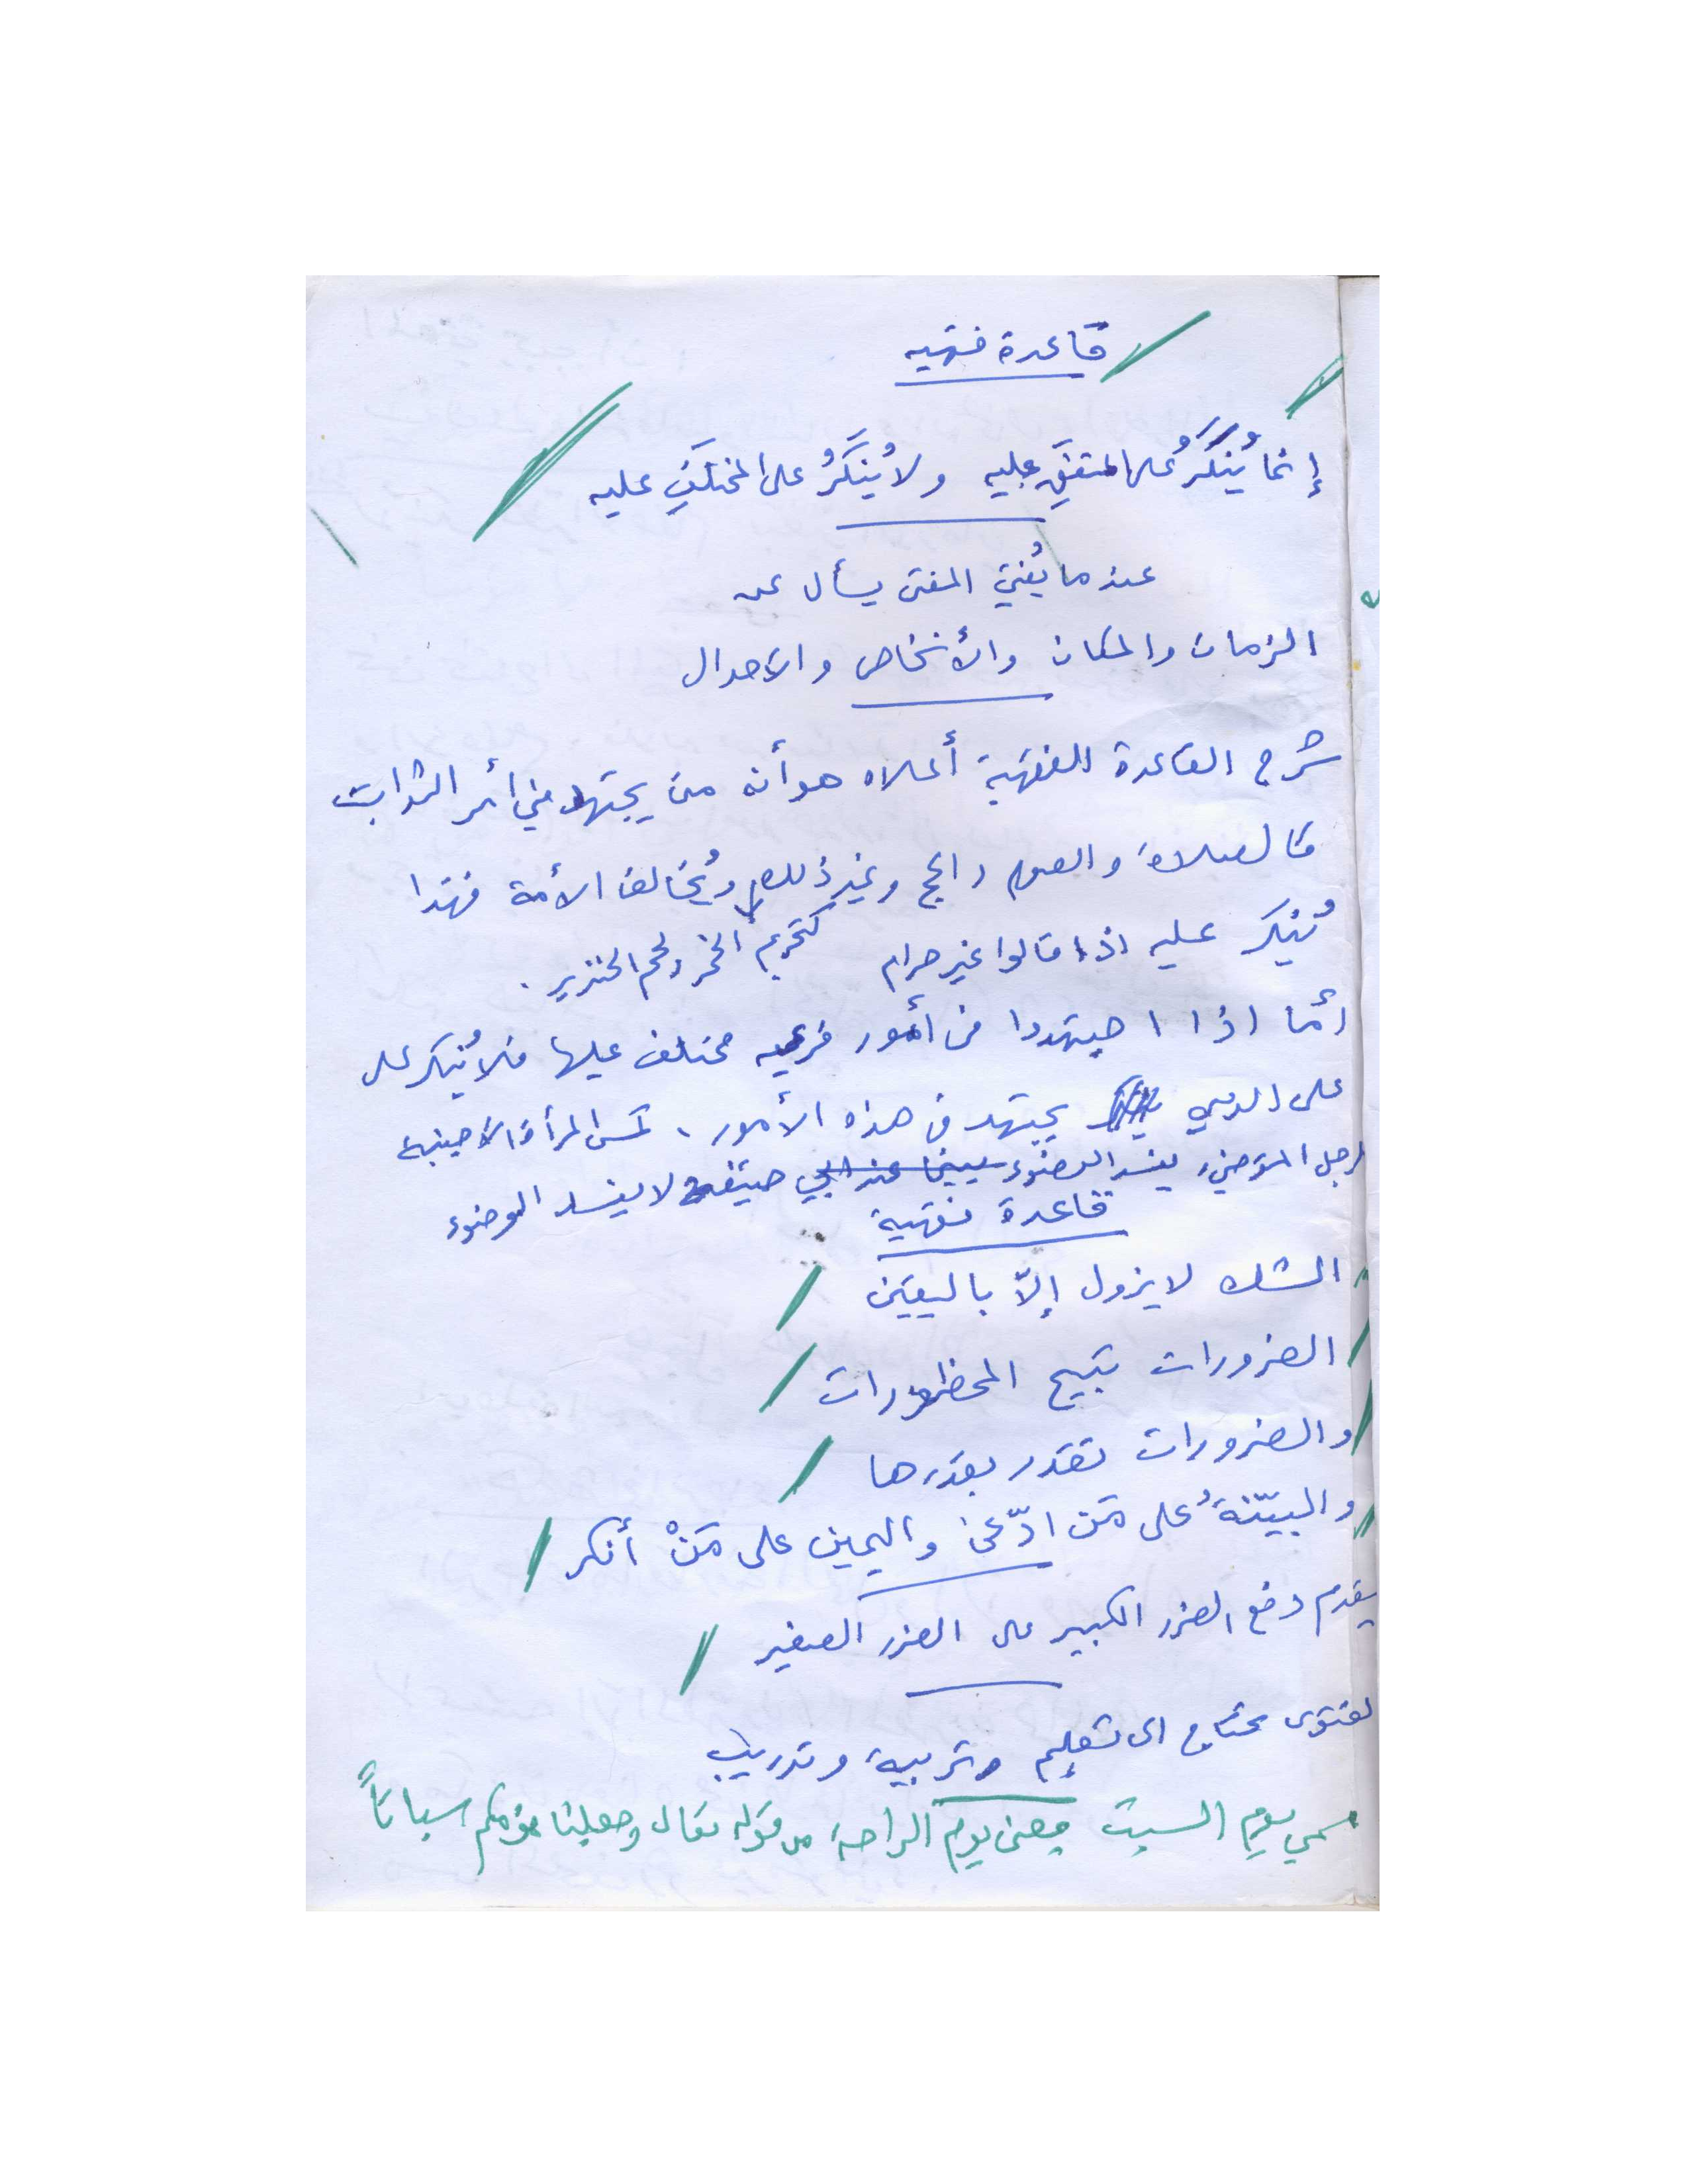 قاعدة فقهيه
إنما يُنكَرُ على المتفقِ عليه ولا يُنكَرُ على المختلَفِ عليه
عندما يُفتي المفتى يسأل عن
الزمان والمكان والأشخاص والاحوال
شرح القاعدة الفقهية أعلاه هو أنه من يجتهد في الثوابت
كالصلاة والصوم والحج وغير ذلك ويُخالف الأمة فهذا
يُنكر عليه اذا قالوا غير حرام كتحريم الخمر ولحم الخنزير .
أما اذا اجتهدوا في أمور فرعيه مختلف عليها فلا يُنكر على
على الذي يجتهد في هذه الأمور، كمس المرأة الاجنبية
لرجل المتوضئ يفسد الوضوء بينما عند حنيفة لا يفسد الوضوء
قاعدة فقهية
الشك لا يزول إلاّ باليقين
الضرورات تبيح المحظورات
والضرورات تقدر بقدرها
والبيّنةُ على مَن ادّعى واليمين على مَنْ أنكر
يقدم دفع الضرر الكبير على الضرر الصغير
لفتوى تحتاج الى تعليم وتربية وتدريب
سمي يوم السبت بمعنى يوم الراحة من قوله تعالى وجعلنا نومكم سباتاً